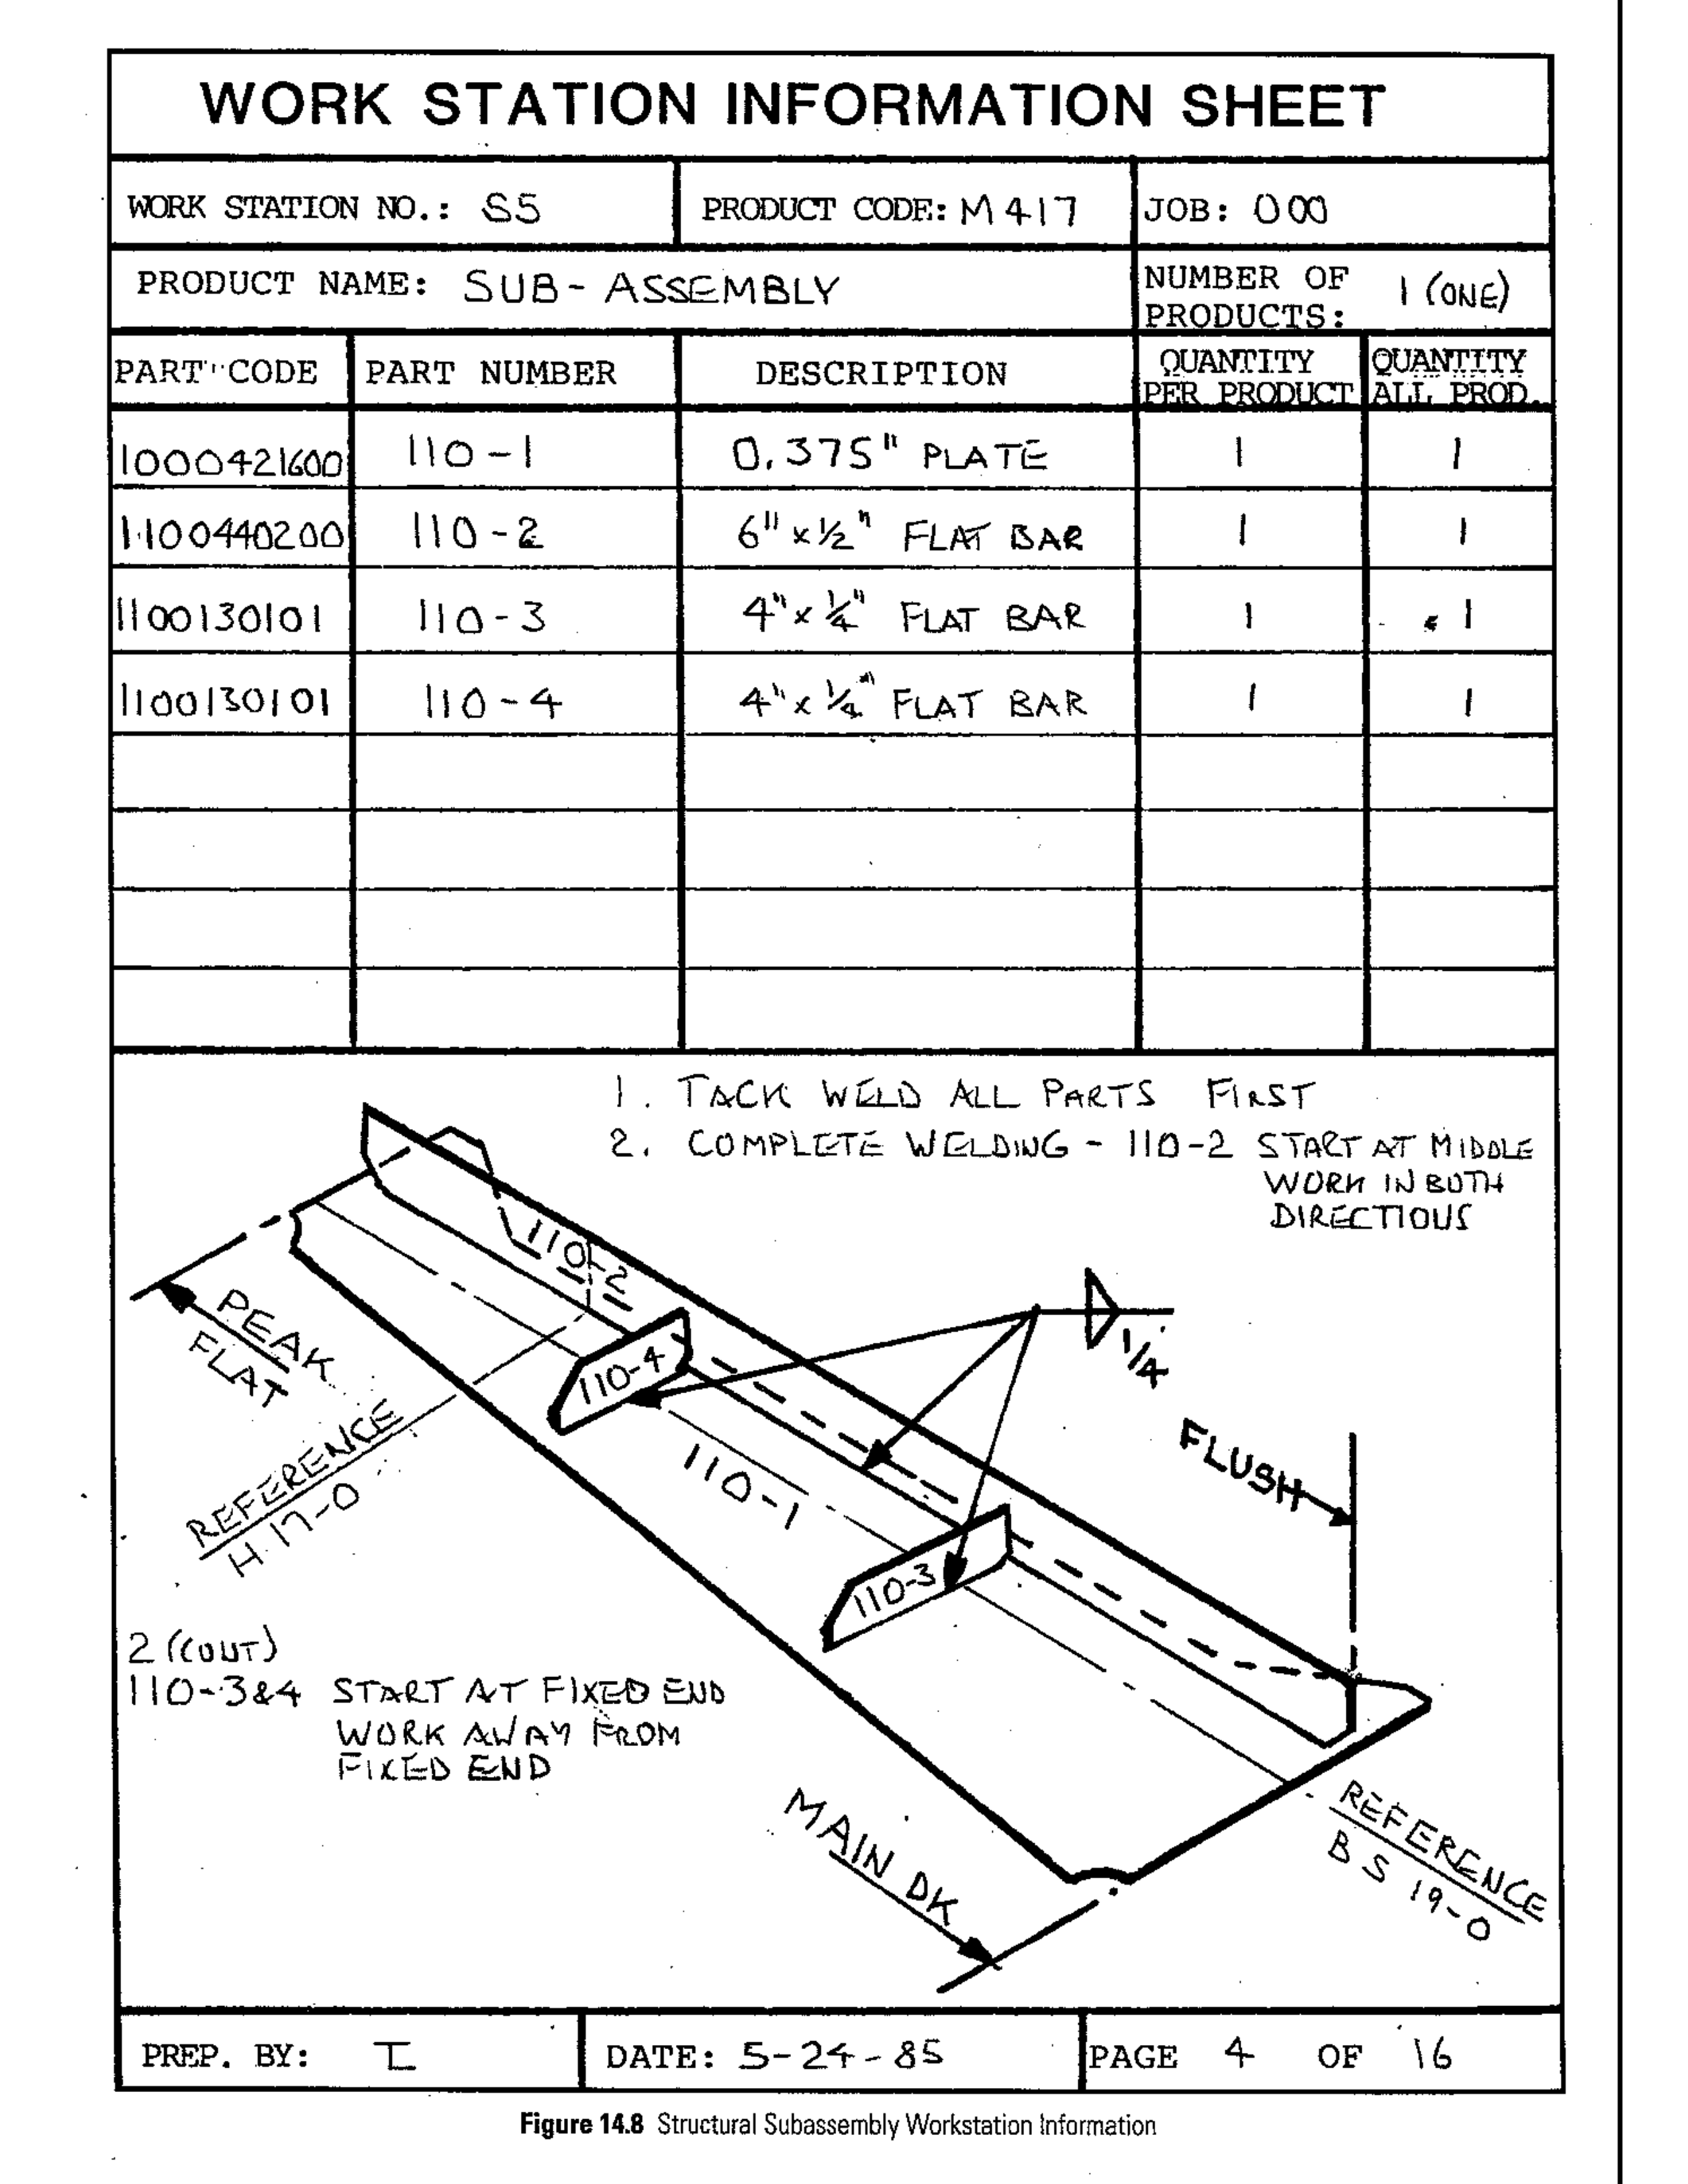 WORK STATION INFORMATION SHEET
WORK STATION NO.: S5 PRODUCT CODE: M417 JOB: 000
PRODUCT NAME: SUB-ASSEMBLY NUMBER OF PRODUCTS: 1 (ONE)
PART CODE PART NUMBER DESCRIPTION QUANTITY PER PRODUCT QUANTITY ALL PROD.
1000421600 110-1 0.375" PLATE 1 1
1100440200 110-2 6" x 1/2" FLAT BAR 1 1
1100130101 110-3 4" x 1/4" FLAT BAR 1 1
1100130101 110-4 4" x 1/4" FLAT BAR 1 1
1. TACK WELD ALL PARTS FIRST
2. COMPLETE WELDING - 110-2 START AT MIDDLE
WORK IN BOTH
DIRECTIONS
110-2
PEAK
FLAT
110-4
1/4
FLUSH
REFERENCE
H 17-0
110-1
110-3
2 (CONT)
110-3&4 START AT FIXED END
WORK AWAY FROM
FIXED END
MAIN DK
REFERENCE
B S 19-0
PREP. BY: I DATE: 5-24-85 PAGE 4 OF 16
Figure 14.8 Structural Subassembly Workstation Information